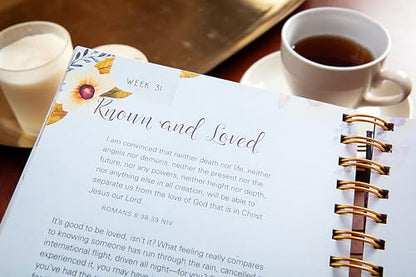 WEEK 31
Known and Loved
I am convinced that neither death nor life, neither
angels nor demons, neither the present nor the
future, nor any powers, neither height nor depth,
nor anything else in all creation, will be able to
separate us from the love of God that is in Christ
Jesus our Lord.
ROMANS 8:38-39 NIV
It's good to be loved, isn't it? What feeling really compares
to knowing someone has run through the rain, cancelled a
international flight, driven all night—for you?
experienced it, you may have
you've had the